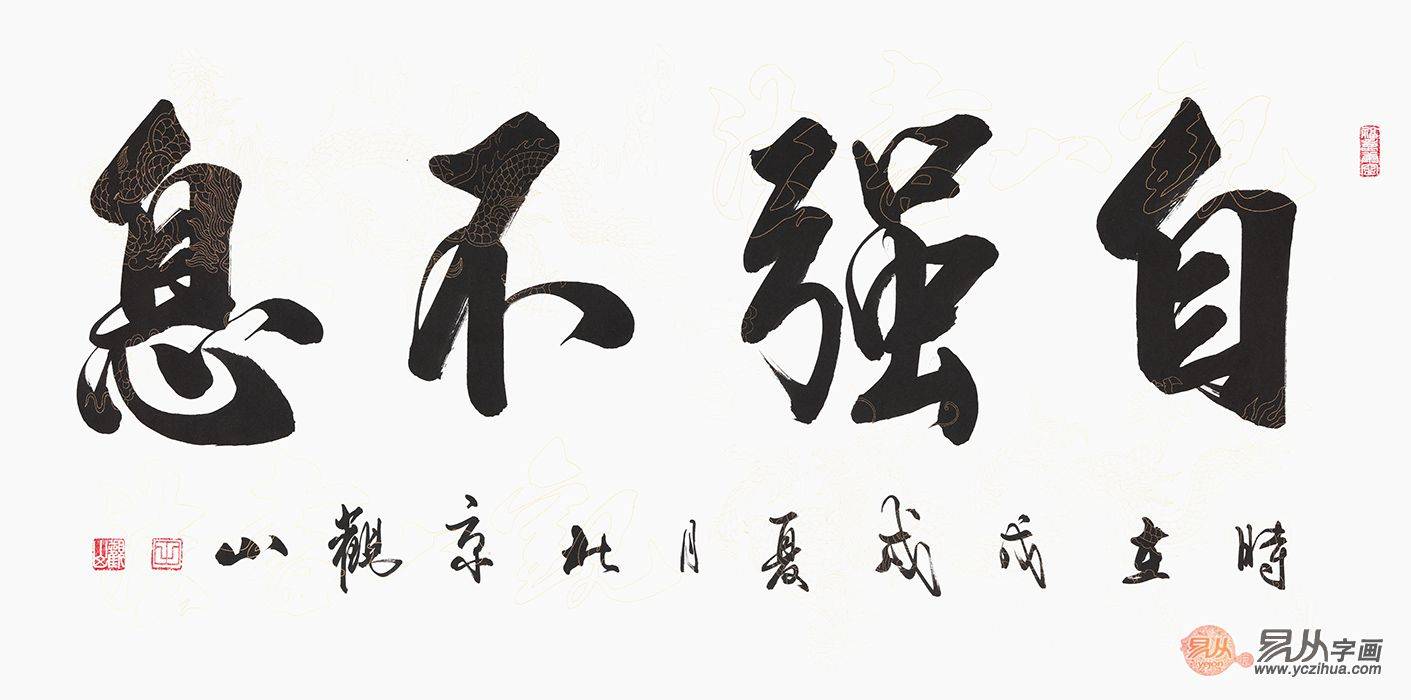 自强不息
時在戊戌夏月北京觀山
易从
yejon
易从字画
www.yczihua.com